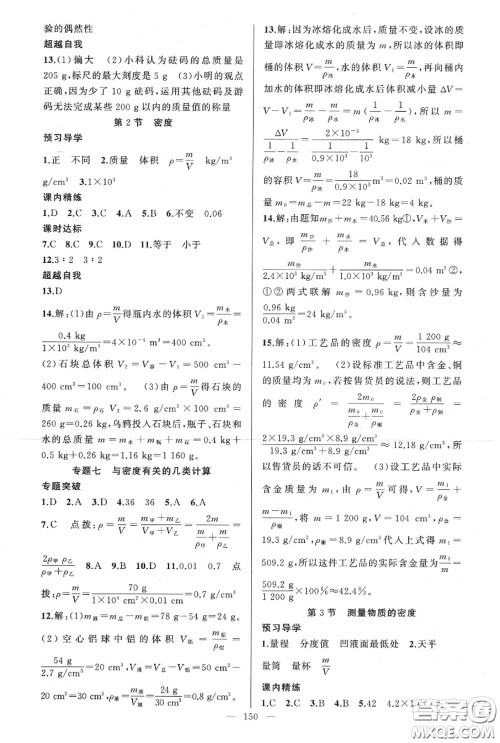 验的偶然性
超越自我
13.(1)偏大 (2)小科认为砝码的总质量是
205 g,标尺的最大刻度是 5 g (3)小明的观点
正确,因为少了 10 g 砝码,运用其他砝码及游
码无法完成某些 200 g 以内的质量值的称量
第 2 节 密度
预习导学
1.正 不同 2.质量 体积 ρ=m/V kg/m³
g/cm³ 3.1×10³
课内精练
1.D 2.C 3.C 4.A 5.B 6.不变 0.06
课时达标
7.C 8.C 9.C 10.D 11.等于 小于
12.3∶2 3∶2
超越自我
13.D
14.解:(1)由 ρ=m/V 得瓶内水的体积 V₁=m水/ρ水
=0.4 kg/(1×10³ kg/m³)=4×10⁻⁴ m³=400 cm³.
(2)石块总体积 V₂=V容-V₁=500 cm³-
400 cm³=100 cm³. (3)由 ρ=m/V 得石块的
质量 m石=ρ石 V₂=2.6 g/cm³×100 cm³=
260 g=0.26 kg,乌鸦投入石块后,瓶子、石块和
水的总质量 m=m水+m瓶+m石=0.4 kg+
0.5 kg+0.26 kg=1.16 kg=1 160 g.
专题七 与密度有关的几类计算
专题突破
1.D 2.D 3.D 4.36 36 5.A 6.A
7.C 点拨:ρ=m/V=(m甲+m乙)/(V甲+V乙)=2m/(m/ρ甲+m/ρ乙)=
2ρ甲ρ乙/(ρ甲+ρ乙) 8.A 9.D 10.B 11.D 12.0.01 点
拨:ρ=m/V=70 g/(1×10⁴ cm²×0.01 cm)=0.7 g/cm³
13.解:(1)水的质量 m水=78 g-54 g=24 g.
(2)空心铝球中铝的体积 V铝=m铝/ρ铝=
54 g/(2.7 g/cm³)=20 cm³,
20 cm³=30 cm³,ρ=24 g/30 cm³=0.8 g/cm³.
13.解:因为冰熔化成水后,质量不变,设冰的质
量即冰熔化成水的质量为 m,所以冰的体积即
桶的容积 V=m/ρ冰,水的体积 V₁=m/ρ水,再向桶内
加水的体积即冰熔化成水后体积减小量 ΔV=
V-V₁=m/ρ冰-m/ρ水=m(1/ρ冰-1/ρ水),所以 m=
18 kg,所以桶
的容积 V=0.02 m³,桶的质
量 m₀=m总-m=22 kg-18 kg=4 kg.
14.解:由题知 m沙+m水=40.56 kg①,V沙+V水
=V总,即 m沙/ρ沙+m水/ρ水=V总,代入数据得
m沙/(2.4×10³ kg/m³)+m水/(1.0×10³ kg/m³)=0.04 m³②,
①②两式联解得 m沙=0.96 kg,则含沙量为
0.96 kg/0.04 m³=24 kg/m³.
15.解:(1)工艺品的密度 ρ=m/V=1 200 g/104 cm³≈
11.54 g/cm³. (2)设标准工艺品中含金、铜
的质量均为 m₀,若按售货员的说法,则工艺品
的密度
2×19.3 g/cm³×8.9 g/cm³/(19.3 g/cm³+8.9 g/cm³)≈12.18 g/cm³,所
以售货员的话不可信. (3)设工艺品中实际
含金质量为 m₁,由 ρ=m/V 可得,V=m₁/ρ金+
将 m=1 200 g,V=104 cm³,ρ金=
19.3 g/cm³,ρ铜=8.9 g/cm³ 代入上式得 m₁=
509.2 g,所以这件工艺品的实际含金量为 m₁/m=
509.2 g/1 200 g×100%≈42.4%.
第 3 节 测量物质的密度
预习导学
1.量程 分度值 凹液面最低处 2.天平
量筒 量杯 m/V
课内精练
1.C 2.C 3.B 4.D 5.42 4.2×1
150